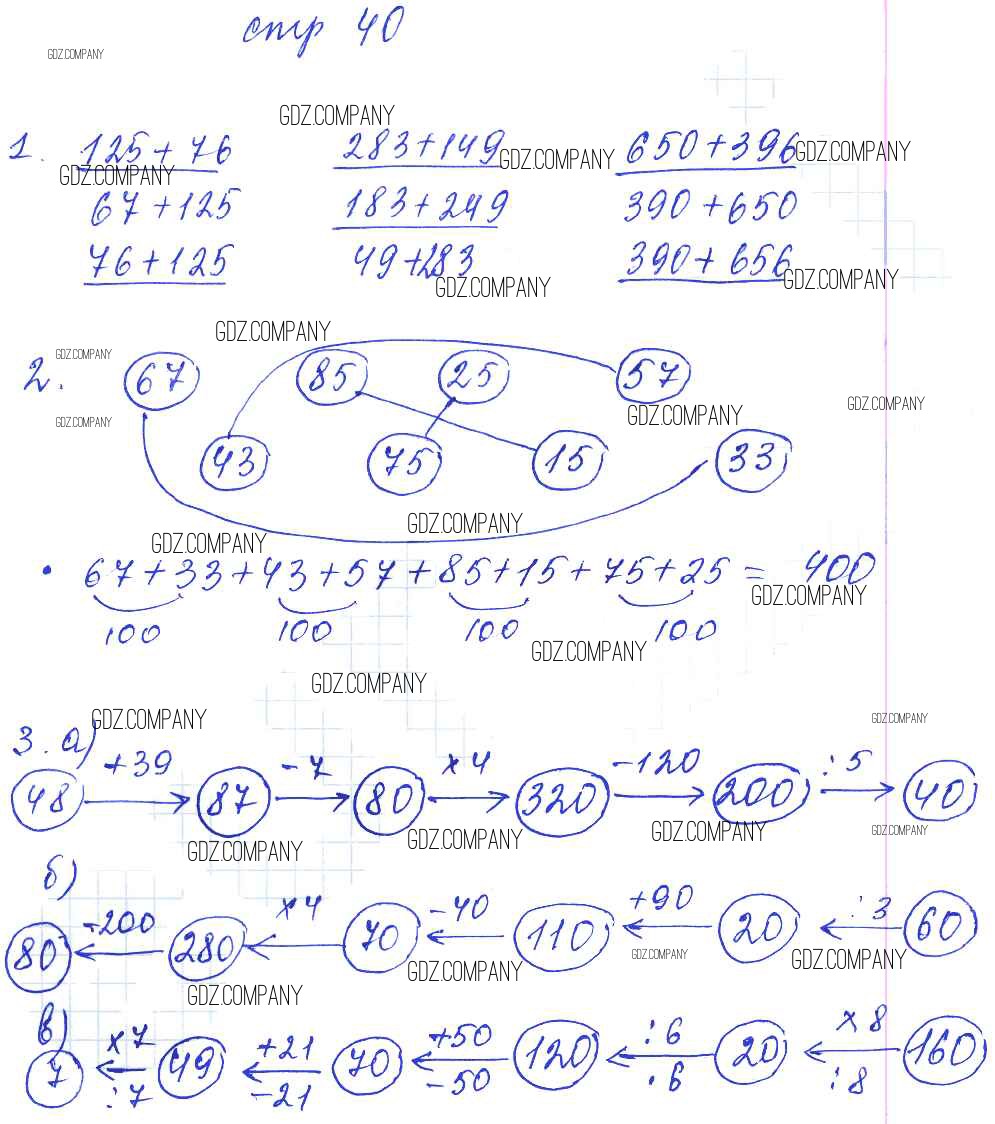 стр 40
GDZ.COMPANY
GDZ.COMPANY
1. 125+76 283+149 650+396
GDZ.COMPANY GDZ.COMPANY GDZ.COMPANY
67+125 183+249 390+650
76+125 49+283 390+656
GDZ.COMPANY GDZ.COMPANY
GDZ.COMPANY
GDZ.COMPANY
2. 67 85 25 57
GDZ.COMPANY GDZ.COMPANY GDZ.COMPANY
43 75 15 33
GDZ.COMPANY
GDZ.COMPANY
• 67+33+43+57+85+15+75+25 = 400
GDZ.COMPANY
100 100 100 100
GDZ.COMPANY
GDZ.COMPANY
GDZ.COMPANY GDZ.COMPANY
3. а)
+39 -7 ×4 -120 :5
48 87 80 320 200 40
GDZ.COMPANY GDZ.COMPANY GDZ.COMPANY GDZ.COMPANY
б)
-200 ×4 -40 +90 :3
80 280 70 110 20 60
GDZ.COMPANY GDZ.COMPANY GDZ.COMPANY
GDZ.COMPANY
в)
×7 +21 +50 :6 ×8
7 49 70 120 20 160
:7 -21 -50 ·6 :8